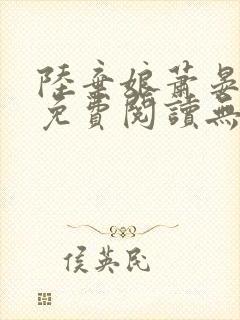 陸棄娘蕭晏
免費閱讀無
侯英民